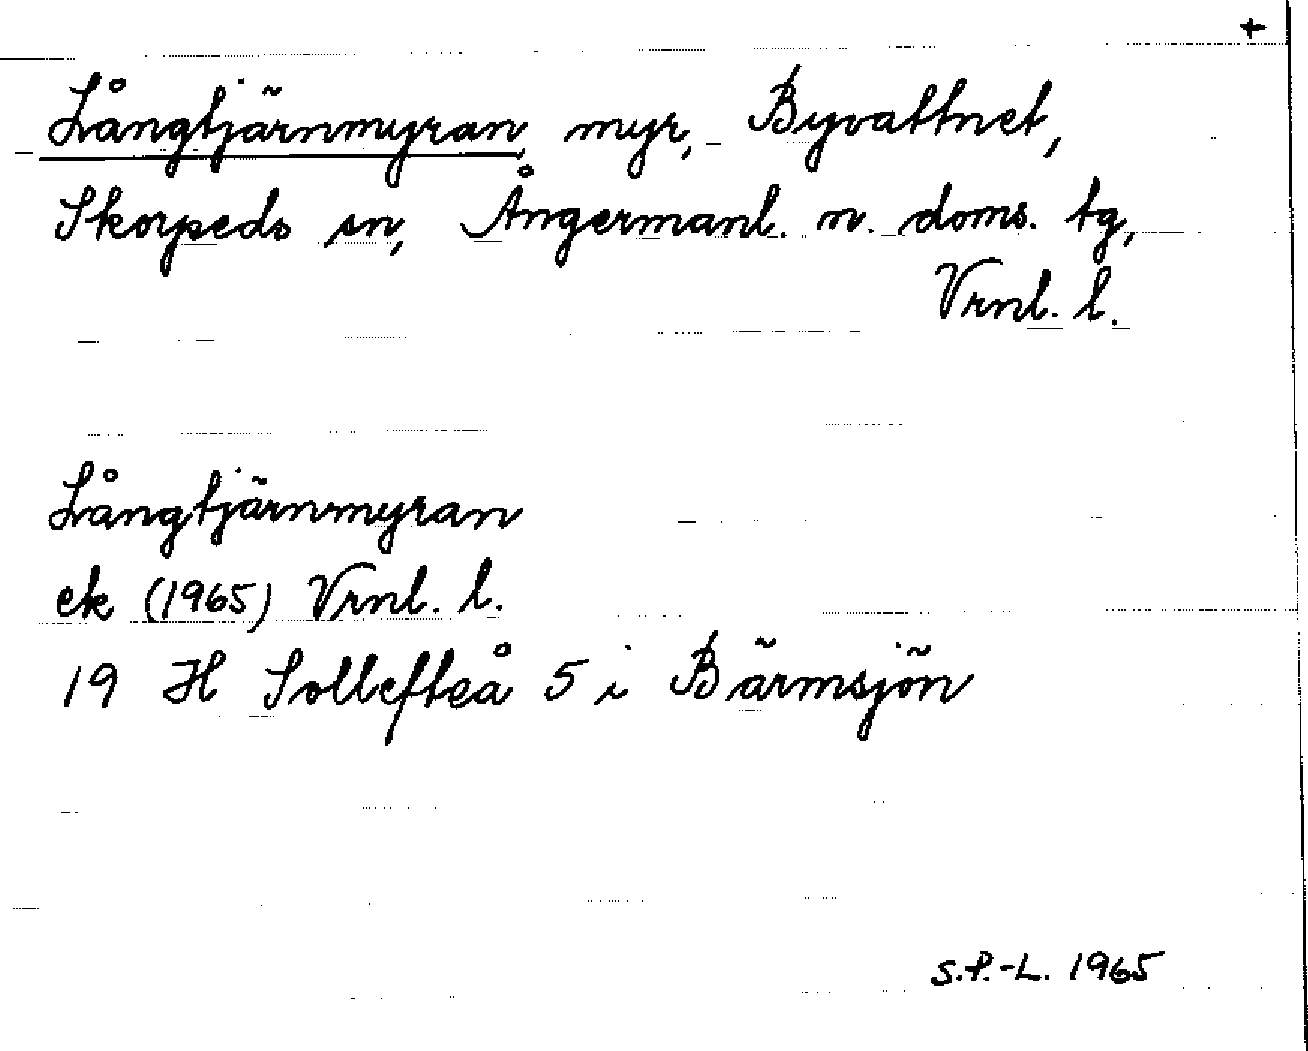 +
Långtjärnmyran, myr, Byvattnet,
Skorpeds sn, Ångermanl. n. doms. tg,
Vrnl. l.
Långtjärnmyran
ek (1965) Vrnl. l.
19 H Sollefteå 5 i Bärmsjön
S.P.-L. 1965